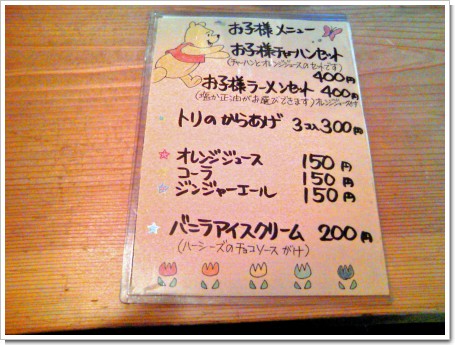 お子様メニュー
お子様チャーハンセット
(チャーハンとオレンジジュースのセットです)
400円
お子様ラーメンセット 400円
(塩か正油がお選びできます)オレンジジュース付
トリのからあげ 3コ入300円
オレンジジュース 150円
コーラ 150円
ジンジャーエール 150円
バニラアイスクリーム 200円
(ハーシーズのチョコソースがけ)